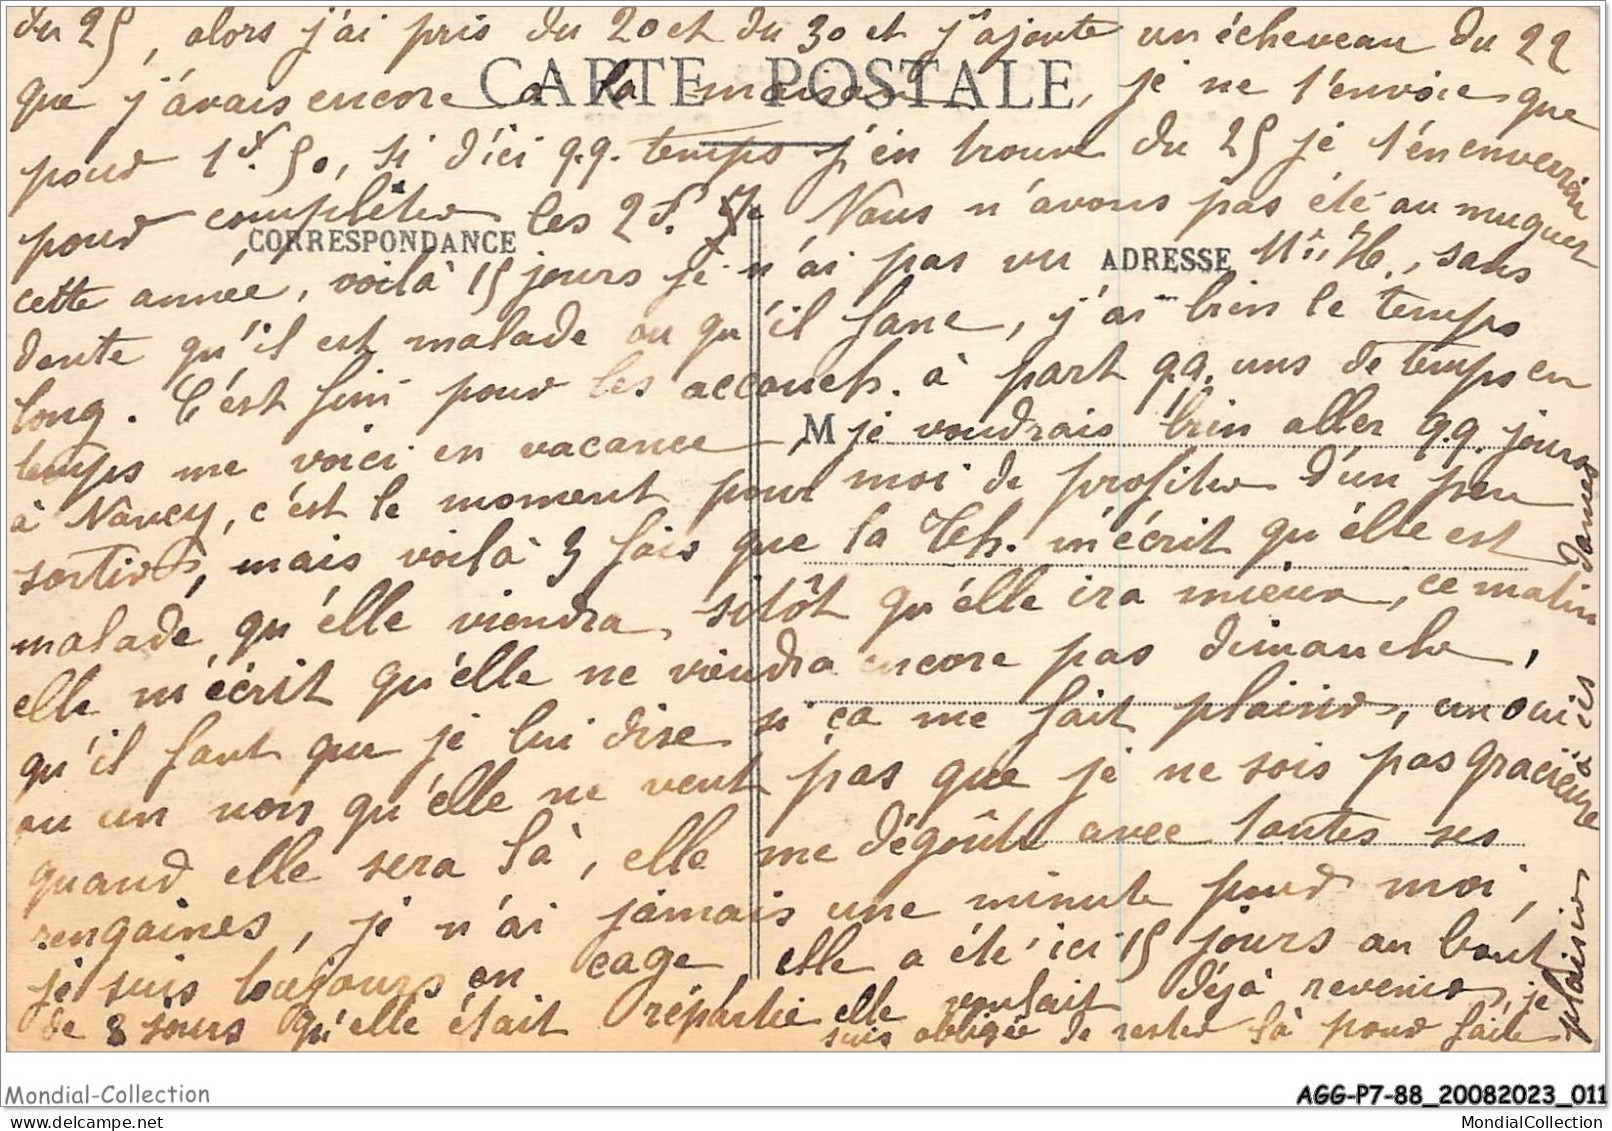 du 25, alors j'ai pris du 20 et du 30 et j'ajoute un écheveau du 22
CARTE POSTALE
que j'avais encore à la maison, je ne t'envoie que
pour 1f.50, si d'ici q.q. temps j'en trouve du 25 je t'en enverrai
pour complèter les 2f. Nous n'avons pas été au muguet
CORRESPONDANCE
ADRESSE
cette année, voilà 15 jours je n'ai pas vu H., sans
doute qu'il est malade ou qu'il fane, j'ai bien le temps
long. C'est fini pour les accouch. à part q.q. uns de temps en
temps me voici en vacance, je voudrais bien aller q.q. jours
M
à Nancy, c'est le moment pour moi de profiter d'un peu
sortir, mais voilà 3 fois que la Th. m'écrit qu'elle est
malade, qu'elle viendra sitôt qu'elle ira mieux, ce matin
elle m'écrit qu'elle ne viendra encore pas dimanche,
qu'il faut que je lui dise si ça me fait plaisir, un oui
ou un non qu'elle ne veut pas que je ne sois pas gracieuse
quand elle sera là, elle me dégoûte avec toutes ses
rengaines, je n'ai jamais une minute pour moi,
je suis toujours en cage, elle a été ici 15 jours au bout
de 8 jours qu'elle était répartie elle voulait déjà revenir, je
suis obligée de rester là pour faire
plaisir à ces dames
Mondial-Collection
AGG-P7-88_20082023_011
MondialCollection.com